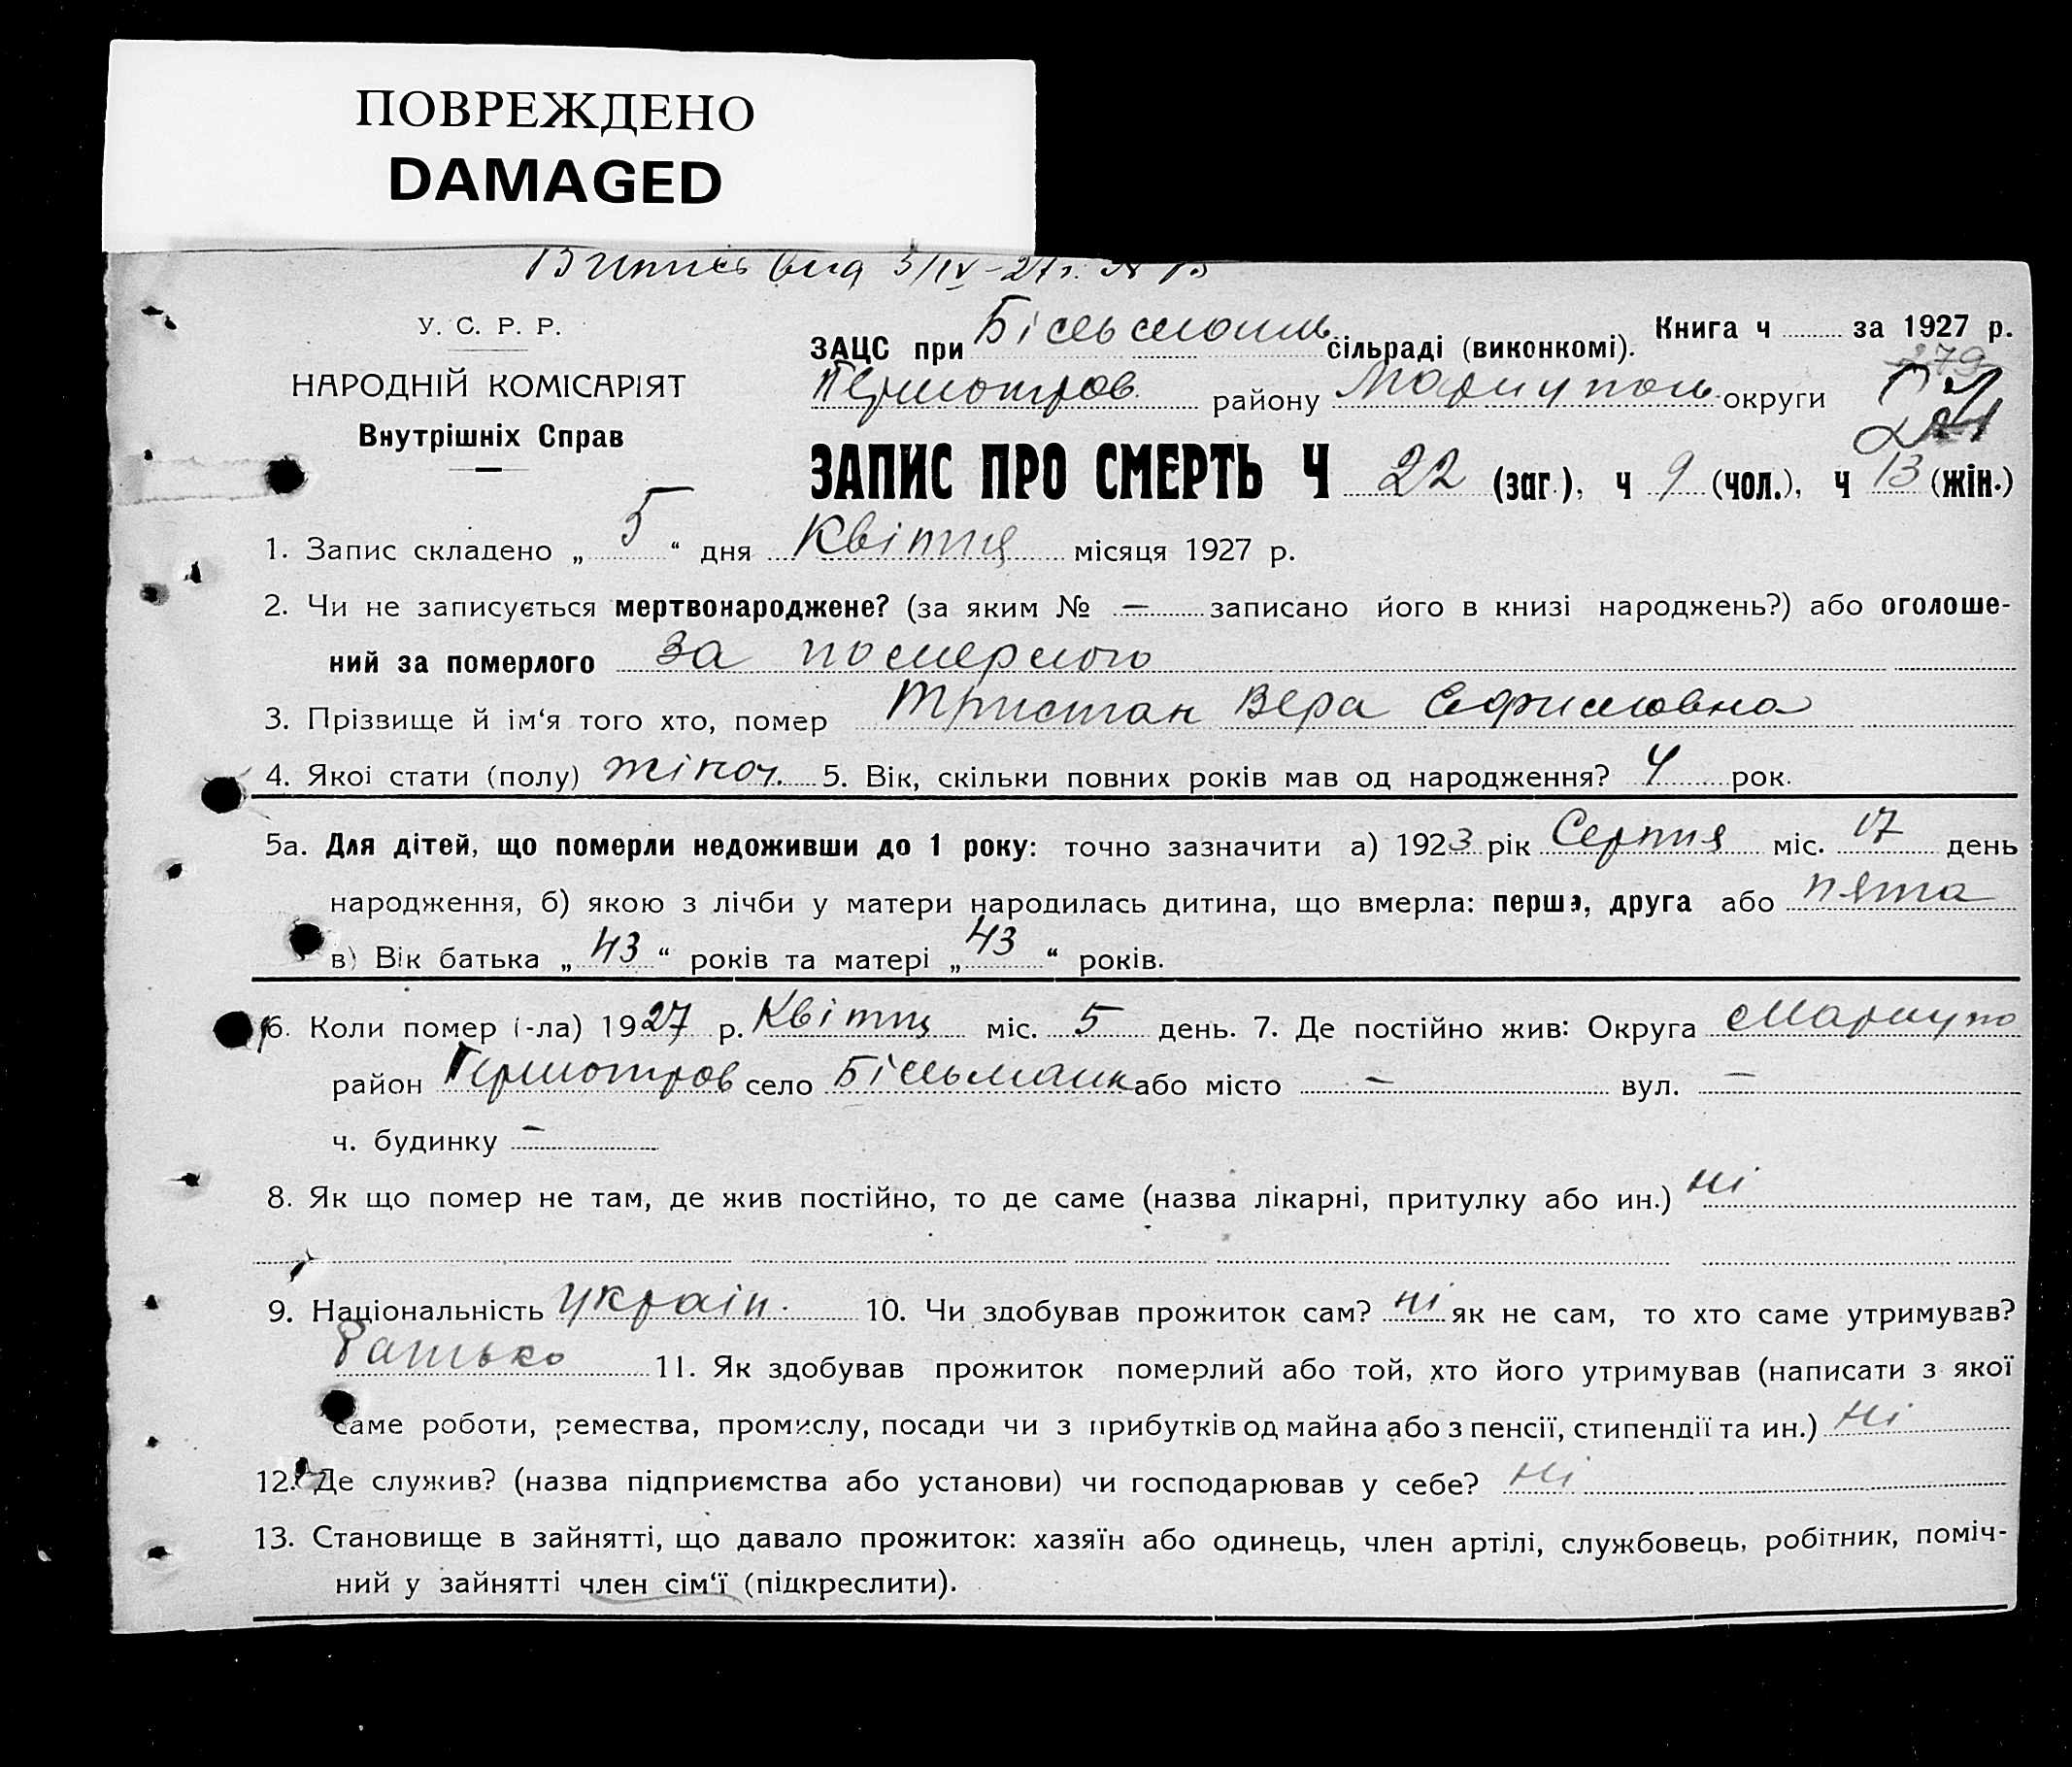 ПОВРЕЖДЕНО
DAMAGED
У. С. Р. Р.
НАРОДНІЙ КОМІСАРІЯТ
Внутрішніх Справ
Книга ч за 1927 р.
ЗАЦС при Більманк сільраді (виконкомі).
279
району Маріуполь округи
ЗАПИС ПРО СМЕРТЬ Ч 22 (заг.), ч 9 (чол.), ч 13 (жін.)
1. Запис складено „ 5 “ дня Квітця місяця 1927 р.
2. Чи не записується мертвонароджене? (за яким № — записано його в книзі народжень?) або оголоше-
ний за померлого за померлого
3. Прізвище й ім‘я того хто, помер Тристан Вера Ефимовна
4. Якої стати (полу) жіноч. 5. Вік, скільки повних років мав од народження? 4 рок.
5а. Для дітей, що померли недоживши до 1 року: точно зазначити а) 1923 рік Серпня міс. 17 день
народження, б) якою з лічби у матери народилась дитина, що вмерла: перша, друга або пята
в) Вік батька „ 43 “ років та матері „ 43 “ років.
6. Коли помер (-ла) 1927 р. Квітця міс. 5 день. 7. Де постійно жив: Округа Мариупо
район село Більманк або місто — вул. —
ч. будинку —
8. Як що помер не там, де жив постійно, то де саме (назва лікарні, притулку або ин.) Ні
9. Національність Украін. 10. Чи здобував прожиток сам? Ні як не сам, то хто саме утримував?
батько 11. Як здобував прожиток померлий або той, хто його утримував (написати з якої
саме роботи, ремества, промислу, посади чи з прибутків од майна або з пенсії, стипендії та ин.) Ні
12. Де служив? (назва підприємства або установи) чи господарював у себе? Ні
13. Становище в зайнятті, що давало прожиток: хазяїн або одинець, член артілі, службовець, робітник, поміч-
ний у зайнятті член сім‘ї (підкреслити).